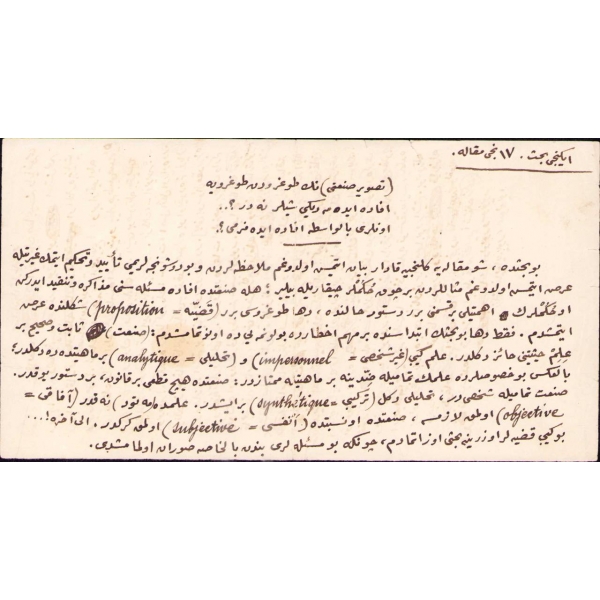 ایكنجی بحث. ١٧ نجی مقاله.
(تصویر صنعتی) نك طوغرودن طوغرویه
افاده ایده مه دیكی شیلر نه در؟..
اونلری بالواسطه افاده ایده‌ مزمی؟.
بو بحثده، شو مقاله یه كلنجییه قادار بیان ایتمش اولدوغم ملاحظه لردن و بو دوشونجه لریمی تأیید و تحكیم ایتمك غیرتیله
عرض ایتمش اولدوغم مثاللردن بر چوق حكملر چیقاریله بیلیر؛ هله صنعتده افاده مسئله سنی مذاكره و تنقید ایدركن
او حكملرك اهمیتلی بر قسمنی برر دستور حالنده، دها طوغروسی برر (قضیّه = proposition) شكلنده عرض
ایتمشدم. فقط دها بو بحثك ابتداسنده بر مهم اخطارده بولونمه یی ده اونوتمامشدم: (صنعت) ثابت و صحیح بر
علمڭ حیثیتنی حائز دكلدر. علم كبی (غیر شخصی = impersonnel) و (تحلیلی = analytique) بر ماهیتده ده دكلدر؛
بالعكس بو خصوصلرده علمك تمامیله ضدّینه بر ماهیته ممتازدر: صنعتده هیچ قطعی بر قانون، بر دستور یوقدر.
صنعت تمامیله شخصی در، تحلیلی دكل (تركیبی = synthétique) بر ایشدر. علمده نه قدر (آفاقی =
objective) اولمق لازمسه، صنعتده او نسبتده (أنفسی = subjective) اولمق گركدر. الی آخره!...
بو كبی قضیه لر اوزرینه بحثی اوزاتمادم، چونكه بو مسئله لری بندن بالخاصه صوران اولمامشدی.